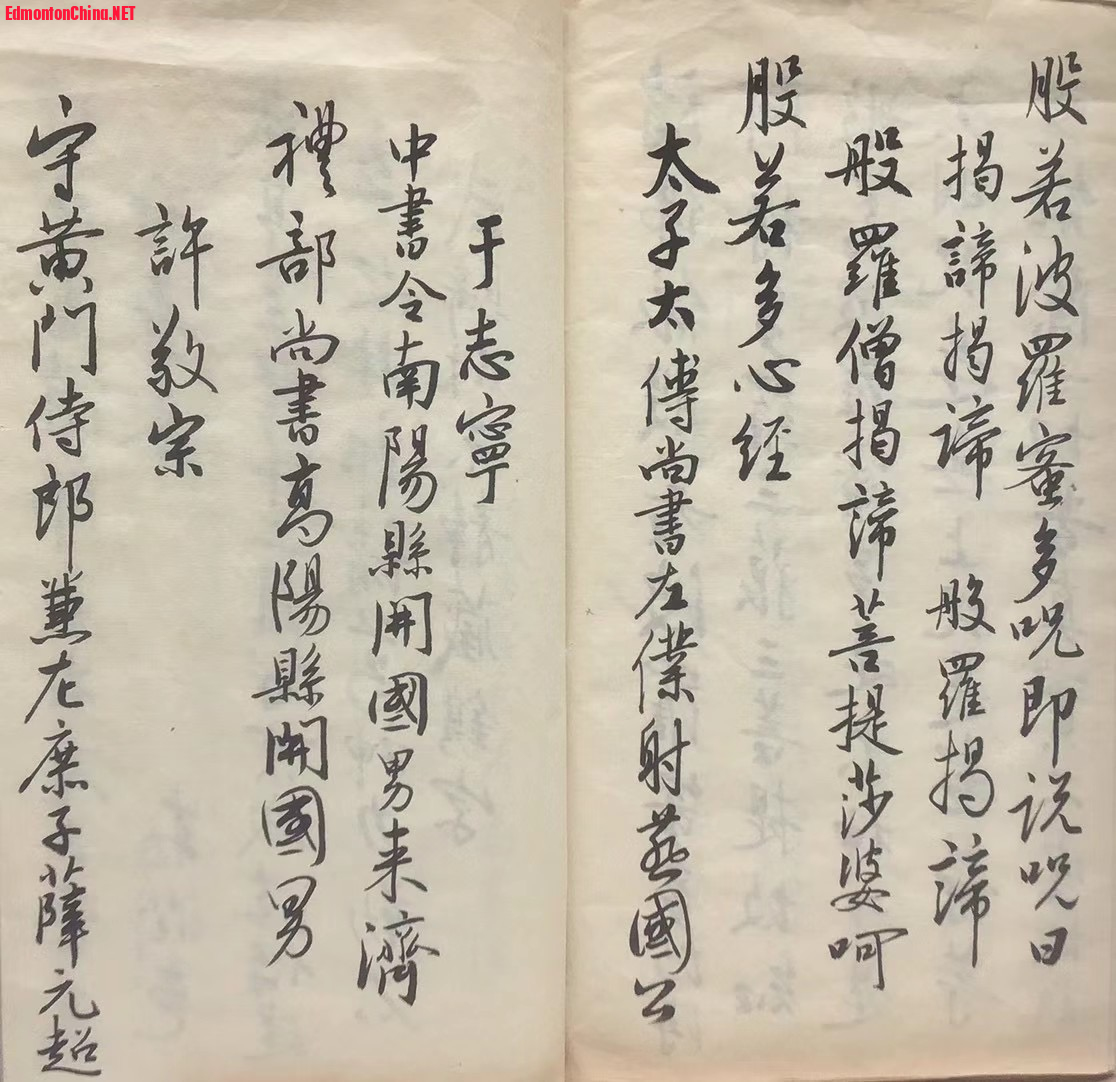 EdmontonChina.NET
般若波羅蜜多咒即说咒曰
揭諦揭諦 般羅揭諦
般羅僧揭諦菩提莎婆呵
般若多心经
太子太傅尚書左僕射燕國公
于志寧
中書令南陽縣開國男来濟
禮部尚書高陽縣開國男
許敬宗
守黃門侍郎兼左庶子薛元超